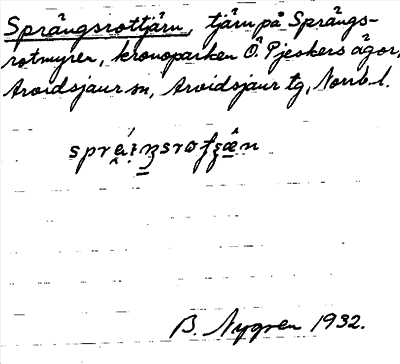 Sprängsrottjärn, tjärn på Sprängs-
rotmyren, kronoparken Ö. Pjeskers ägor,
Arvidsjaur sn, Arvidsjaur tg, Norrb. l.
B. Nygren 1932.